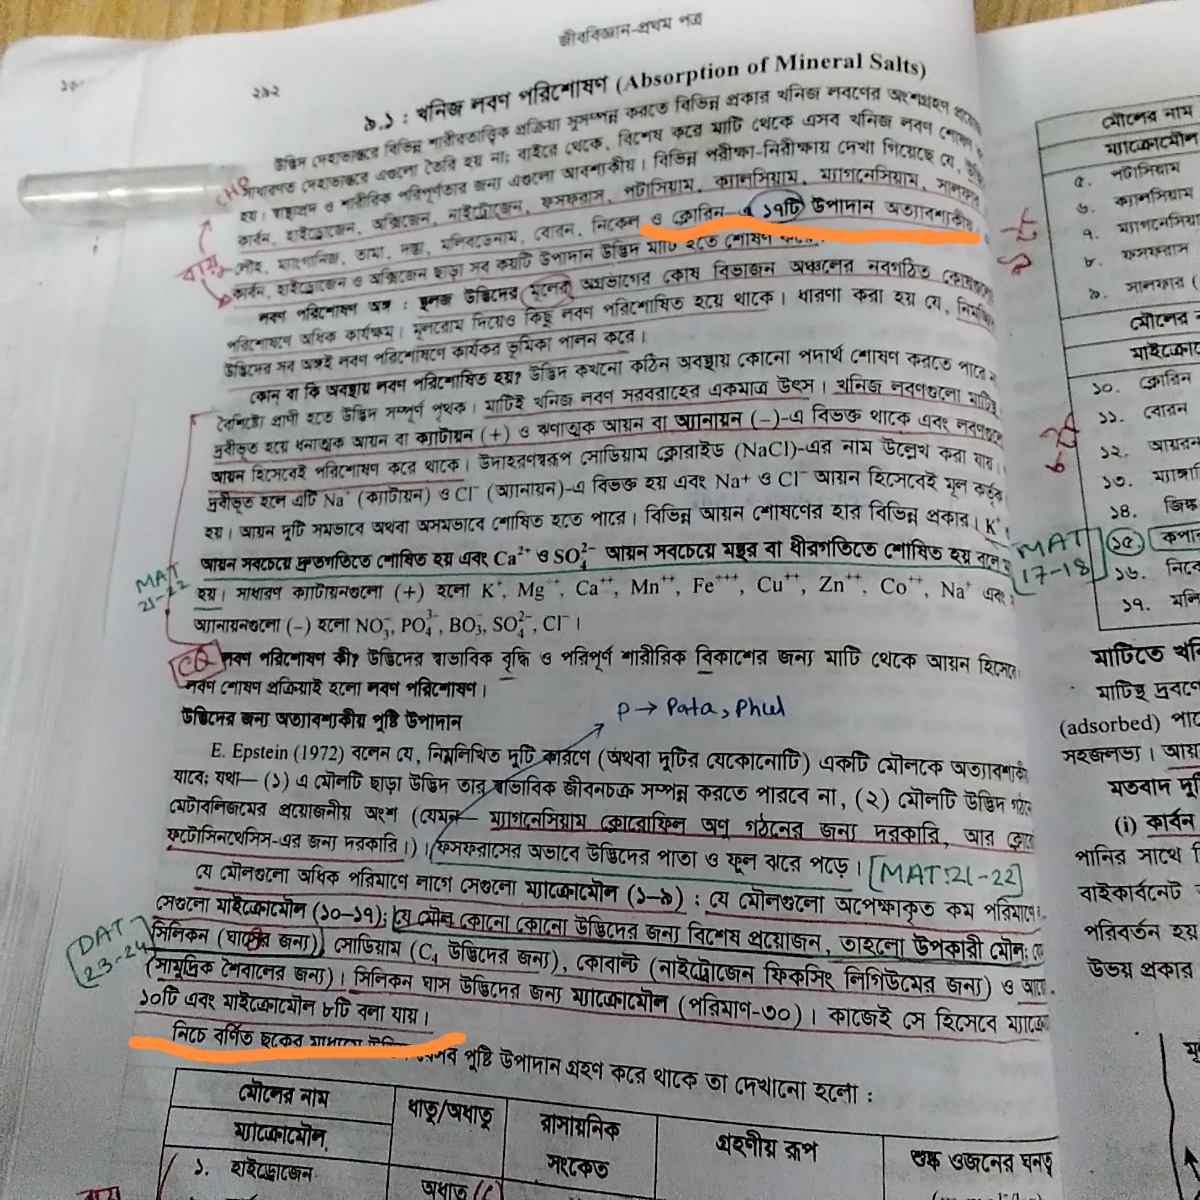 জীববিজ্ঞান-প্রথম পত্র
২৯২
৯.১ : খনিজ লবণ পরিশোষণ (Absorption of Mineral Salts)
উদ্ভিদ দেহাভ্যন্তরে বিভিন্ন শারীরতাত্ত্বিক প্রক্রিয়া সুসম্পন্ন করতে বিভিন্ন প্রকার খনিজ লবণের অংশগ্রহণ
সাধারণত দেহাভ্যন্তরে এগুলো তৈরি হয় না; বাইরে থেকে, বিশেষ করে মাটি থেকে এসব খনিজ লবণ শোষণ
হয়। স্বাভাবিক ও শারীরিক পরিপূর্ণতার জন্য এগুলো আবশ্যকীয়। বিভিন্ন পরীক্ষা-নিরীক্ষায় দেখা গিয়েছে যে,
কার্বন, হাইড্রোজেন, অক্সিজেন, নাইট্রোজেন, ফসফরাস, পটাসিয়াম, ক্যালসিয়াম, ম্যাগনেসিয়াম, সালফার
লৌহ, ম্যাংগানিজ, তামা, দস্তা, মলিবডেনাম, বোরন, নিকেল ও ক্লোরিন এ ১৭টি উপাদান অত্যাবশ্যকীয়
কার্বন, হাইড্রোজেন ও অক্সিজেন ছাড়া সব কয়টি উপাদান উদ্ভিদ মাটি হতে শোষণ করে।
লবণ পরিশোষণ অঙ্গ : স্থলজ উদ্ভিদের মূলের অগ্রভাগের কোষ বিভাজন অঞ্চলের নবগঠিত কোষগুলো
পরিশোষণে অধিক কার্যক্ষম। মূলরোম দিয়েও কিছু লবণ পরিশোষিত হয়ে থাকে। ধারণা করা হয় যে, নিমজ্জিত
উদ্ভিদের সব অঙ্গই লবণ পরিশোষণে কার্যকর ভূমিকা পালন করে।
কোন বা কি অবস্থায় লবণ পরিশোষিত হয়? উদ্ভিদ কখনো কঠিন অবস্থায় কোনো পদার্থ শোষণ করতে পারে না
বৈশিষ্ট্যে প্রাণী হতে উদ্ভিদ সম্পূর্ণ পৃথক। মাটিই খনিজ লবণ সরবরাহের একমাত্র উৎস। খনিজ লবণগুলো মাটিস্থ
দ্রবীভূত হয়ে ধনাত্মক আয়ন বা ক্যাটায়ন (+) ও ঋণাত্মক আয়ন বা অ্যানায়ন (−)-এ বিভক্ত থাকে এবং লবণগুলো
আয়ন হিসেবেই পরিশোষণ করে থাকে। উদাহরণস্বরূপ সোডিয়াম ক্লোরাইড (NaCl)-এর নাম উল্লেখ করা যায়।
দ্রবীভূত হলে এটি Na⁺ (ক্যাটায়ন) ও Cl⁻ (অ্যানায়ন)-এ বিভক্ত হয় এবং Na+ ও Cl⁻ আয়ন হিসেবেই মূল কর্তৃক
হয়। আয়ন দুটি সমভাবে অথবা অসমভাবে শোষিত হতে পারে। বিভিন্ন আয়ন শোষণের হার বিভিন্ন প্রকার। K⁺
আয়ন সবচেয়ে দ্রুতগতিতে শোষিত হয় এবং Ca²⁺ ও SO₄²⁻ আয়ন সবচেয়ে মন্থর বা ধীরগতিতে শোষিত হয় বলে
হয়। সাধারণ ক্যাটায়নগুলো (+) হলো K⁺, Mg⁺⁺, Ca⁺⁺, Mn⁺⁺, Fe⁺⁺⁺, Cu⁺⁺, Zn⁺⁺, Co⁺⁺, Na⁺ এবং
অ্যানায়নগুলো (−) হলো NO₃⁻, PO₄³⁻, BO₃⁻, SO₄²⁻, Cl⁻।
MAT 21-22
MAT 17-18
CQ
লবণ পরিশোষণ কী? উদ্ভিদের স্বাভাবিক বৃদ্ধি ও পরিপূর্ণ শারীরিক বিকাশের জন্য মাটি থেকে আয়ন হিসেবে
লবণ শোষণ প্রক্রিয়াই হলো লবণ পরিশোষণ।
উদ্ভিদের জন্য অত্যাবশ্যকীয় পুষ্টি উপাদান
P → Pata, Phul
E. Epstein (1972) বলেন যে, নিম্নলিখিত দুটি কারণে (অথবা দুটির যেকোনোটি) একটি মৌলকে অত্যাবশ্যকীয়
যাবে; যথা— (১) এ মৌলটি ছাড়া উদ্ভিদ তার স্বাভাবিক জীবনচক্র সম্পন্ন করতে পারবে না, (২) মৌলটি উদ্ভিদ গঠনে
মেটাবলিজমের প্রয়োজনীয় অংশ (যেমন— ম্যাগনেসিয়াম ক্লোরোফিল অণু গঠনের জন্য দরকারি, আর
ফটোসিনথেসিস-এর জন্য দরকারি।)। ফসফরাসের অভাবে উদ্ভিদের পাতা ও ফুল ঝরে পড়ে। [MAT:21-22]
যে মৌলগুলো অধিক পরিমাণে লাগে সেগুলো ম্যাক্রোমৌল (১–৯) ; যে মৌলগুলো অপেক্ষাকৃত কম পরিমাণে
সেগুলো মাইক্রোমৌল (১০–১৭); যে মৌল কোনো কোনো উদ্ভিদের জন্য বিশেষ প্রয়োজন, তাহলো উপকারী মৌল;
DAT 23-24
সিলিকন (ঘাসের জন্য), সোডিয়াম (C₄ উদ্ভিদের জন্য), কোবাল্ট (নাইট্রোজেন ফিকসিং লিগিউমের জন্য) ও
(সামুদ্রিক শৈবালের জন্য)। সিলিকন ঘাস উদ্ভিদের জন্য ম্যাক্রোমৌল (পরিমাণ-৩০)। কাজেই সে হিসেবে ম্যাক্রো
১০টি এবং মাইক্রোমৌল ৮টি বলা যায়।
নিচে বর্ণিত ছকের মাধ্যমে পুষ্টি উপাদান গ্রহণ করে থাকে তা দেখানো হলো :
মৌলের নাম
ধাতু/অধাতু
রাসায়নিক সংকেত
গ্রহণীয় রূপ
শুষ্ক ওজনের ঘনত্ব
ম্যাক্রোমৌল
১. হাইড্রোজেন
অধাতু
মৌলের নাম
ম্যাক্রোমৌল
৫. পটাসিয়াম
৬. ক্যালসিয়াম
৭. ম্যাগনেসিয়াম
৮. ফসফরাস
৯. সালফার
মৌলের
মাইক্রো
১০. ক্লোরিন
১১. বোরন
১২. আয়রন
১৩. ম্যাঙ্গা
১৪. জিঙ্ক
১৫ কপা
১৬. নিকে
১৭. মলি
মাটিতে
মাটিস্থ দ্রবণে
(adsorbed)
সহজলভ্য।
মতবাদ
(i) কার্বন
পানির সাথে
বাইকার্বনেট
পরিবর্তন হয়
উভয় প্রকার